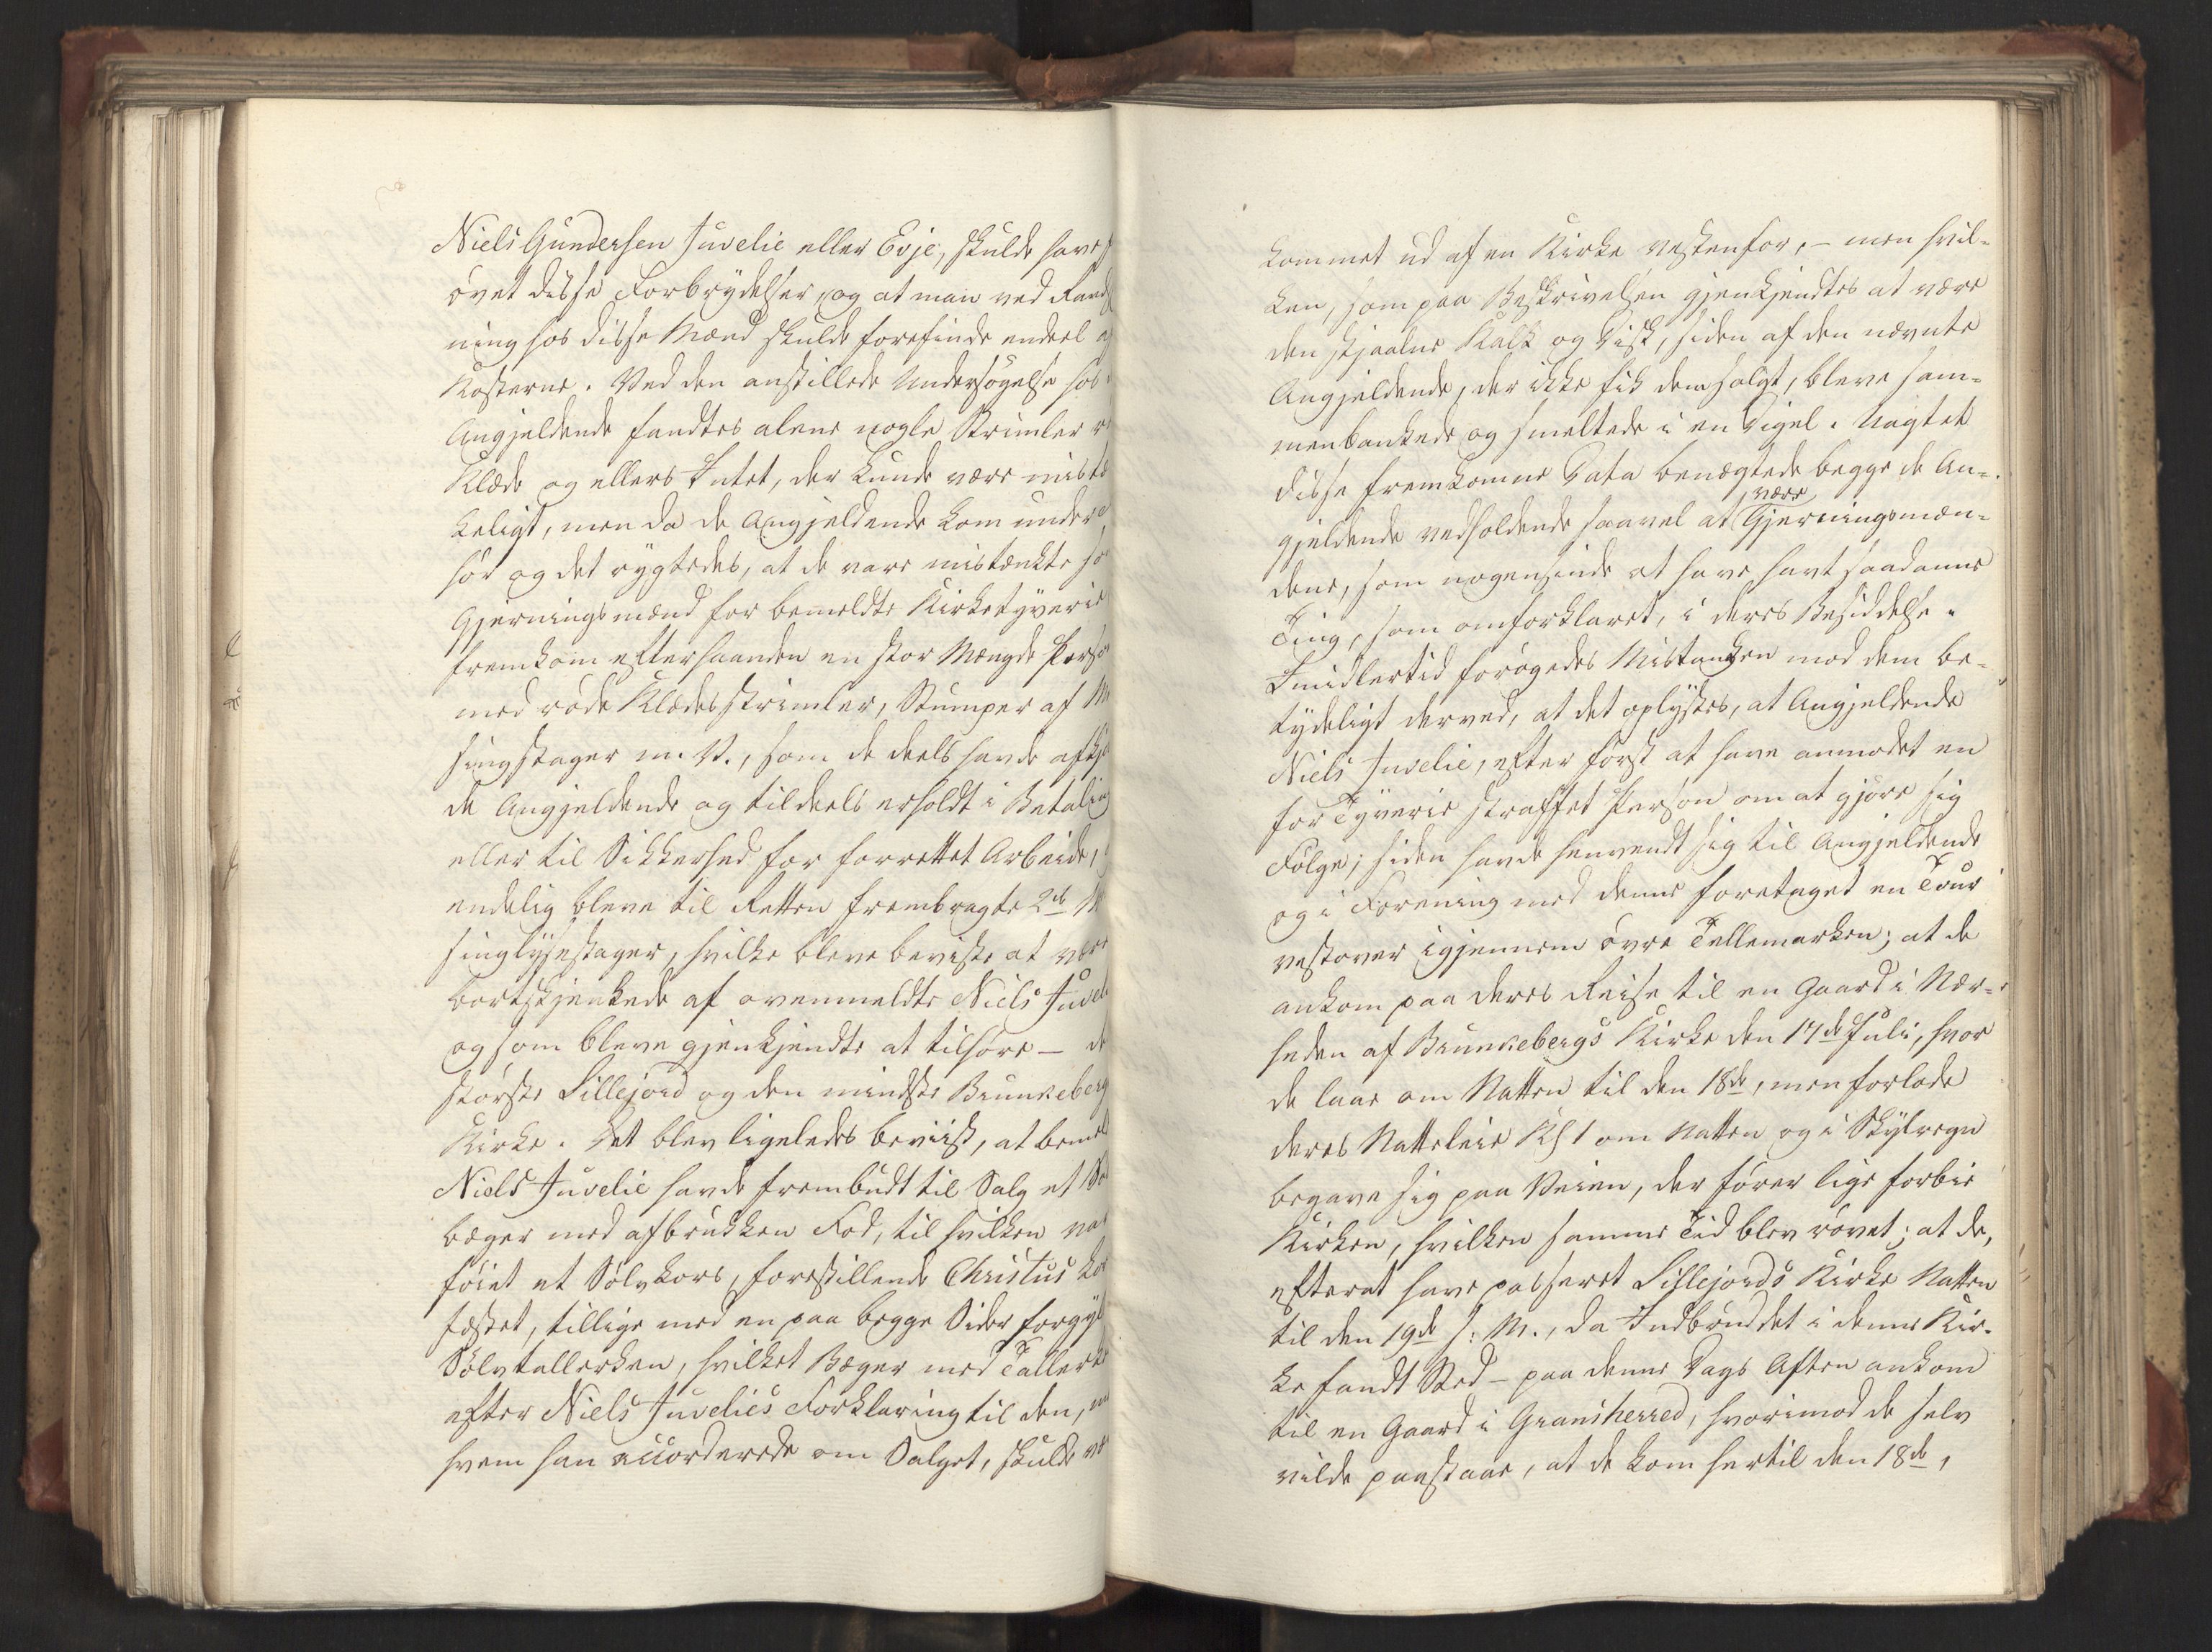 Niels Gundersen Juvelie eller Evje, skulde have
övet disse Forbrydelser, og at man ved Rands
ning hos disse Mænd skulde forefinde endeel
Kosterne. Ved den anstillede Undersögelse hos
Angjeldende fandtes alene nogle Strimler
Klæde og ellers Intet, der kunde være mistæn
keligt, men da de Angjeldende kom under
hör og det rygtedes, at de vare mistænkte
Gjerningsmænd for bemeldte Kirketyverie
fremkom efterhaanden en stor Mængde Perso
med röde Klædesstrimler, Stumper af M
singstager m. V., som de deels havde afkjö
de Angjeldende og tildeels erholdt i Betaling
eller til Sikkerhed for forrettet Arbeide,
endelig bleve til Retten frembragte 2de M
singlysestager, hvilke bleve beviste at være
bortskjenkede af ovenmeldte Niels Juveli
og som bleve gjenkjendte at tilhöre – de
störste Sillejord og den mindste Brunkeberg
Kirke. Det blev ligeledes beviist, at bemel
Niels Juvelie havde frembudt til Salg et Sö
bæger med afbrukken Fod, til hvilken var
föiet et Sölvkors, forestillende Christus kors
fæstet, tillige med en paa begge Sider forgyl
Sölvtallerken, hvilket Bæger med Tallerke
efter Niels Juvelies Forklaring til den, 
hvem han accorderede om Salget, skulde væ
kommet ud af en Kirke vestenfor, – men hvil-
ken, som paa Beskrivelsen gjenkjendtes at være
den stjaalne Kalk og Disk, siden af den nævnte
Angjeldende, der ikke fik dem solgt, bleve sam-
menbankede og smeltede i en Digel. Uagtet
disse fremkomne Data benægtede begge de An-
gjeldende vedholdende saavel at være Gjerningsmæn-
dene, som nogensinde at have havt saadanne
Ting, som omforklaret, i deres Besiddelse.
Imidlertid forögedes Mistanken mod dem be-
tydeligt derved, at det oplystes, at Angjeldende
Niels Juvelie, efter först at have anmodet en
for Tyverie straffet Person om at gjöre sig
Fölge, siden havde henvendt sig til Angjeldende
og i Forening med denne foretaget en Tour
vestover igjennem övre Tellemarken; at de
ankom paa deres Reise til en Gaard i Nær-
heden af Brunkebergs Kirke den 17de Juli, hvor
de laae om Natten til den 18de, men forlode
deres Natteleie Kl 1 om Natten og i Skylregn
begave sig paa Veien, der förer lige forbie
Kirken, hvilken samme Tid blev rövet; at de,
efterat have passeret Sillejords Kirke Natten
til den 19de s. M., da Indbruddet i denne Kir-
ke fandt Sted – paa denne Dags Aften ankom
til en Gaard i Gransherred, hvorimod de selv
vilde paastaae, at de kom hertil den 18de,